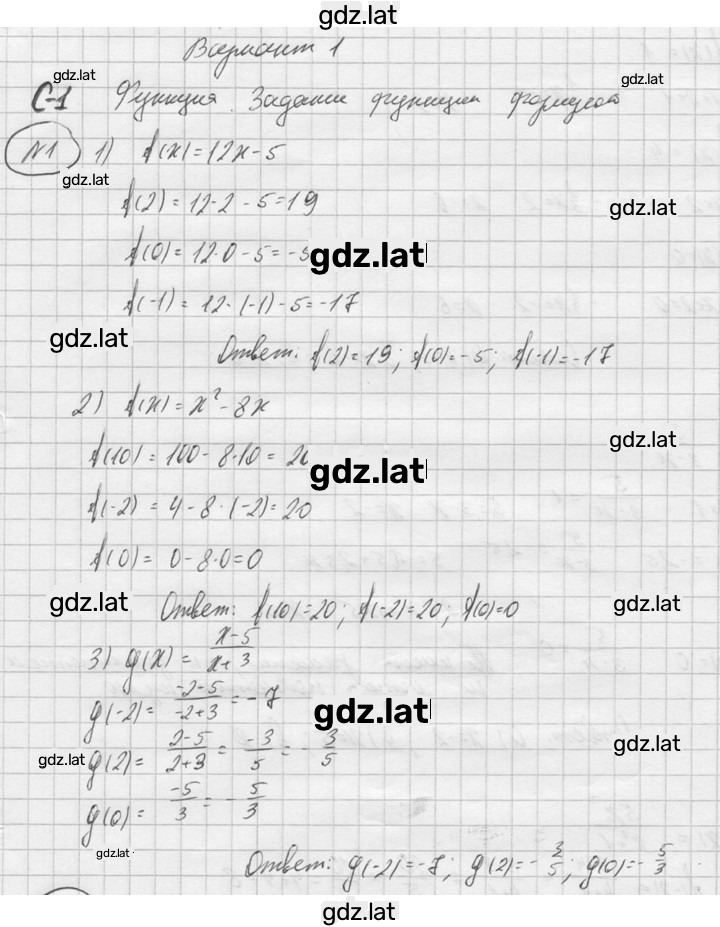 gdz.lat
Вариант 1
gdz.lat
gdz.lat
С-1 Функция. Задание функции формулой
№1 1) f(x) = 12x - 5
gdz.lat
f(2) = 12·2 - 5 = 19
gdz.lat
f(0) = 12·0 - 5 = -5
gdz.lat
f(-1) = 12·(-1) - 5 = -17
gdz.lat
Ответ: f(2) = 19; f(0) = -5; f(-1) = -17
2) f(x) = x² - 8x
gdz.lat
f(10) = 100 - 8·10 = 20
gdz.lat
f(-2) = 4 - 8·(-2) = 20
f(0) = 0 - 8·0 = 0
gdz.lat
Ответ: f(10) = 20; f(-2) = 20; f(0) = 0
gdz.lat
3) g(x) = (x-5)/(x+3)
g(-2) = (-2-5)/(-2+3) = -7
gdz.lat
g(2) = (2-5)/(2+3) = (-3)/5 = -3/5
gdz.lat
gdz.lat
g(0) = (-5)/3 = -5/3
gdz.lat
Ответ: g(-2) = -7; g(2) = -3/5; g(0) = -5/3
gdz.lat